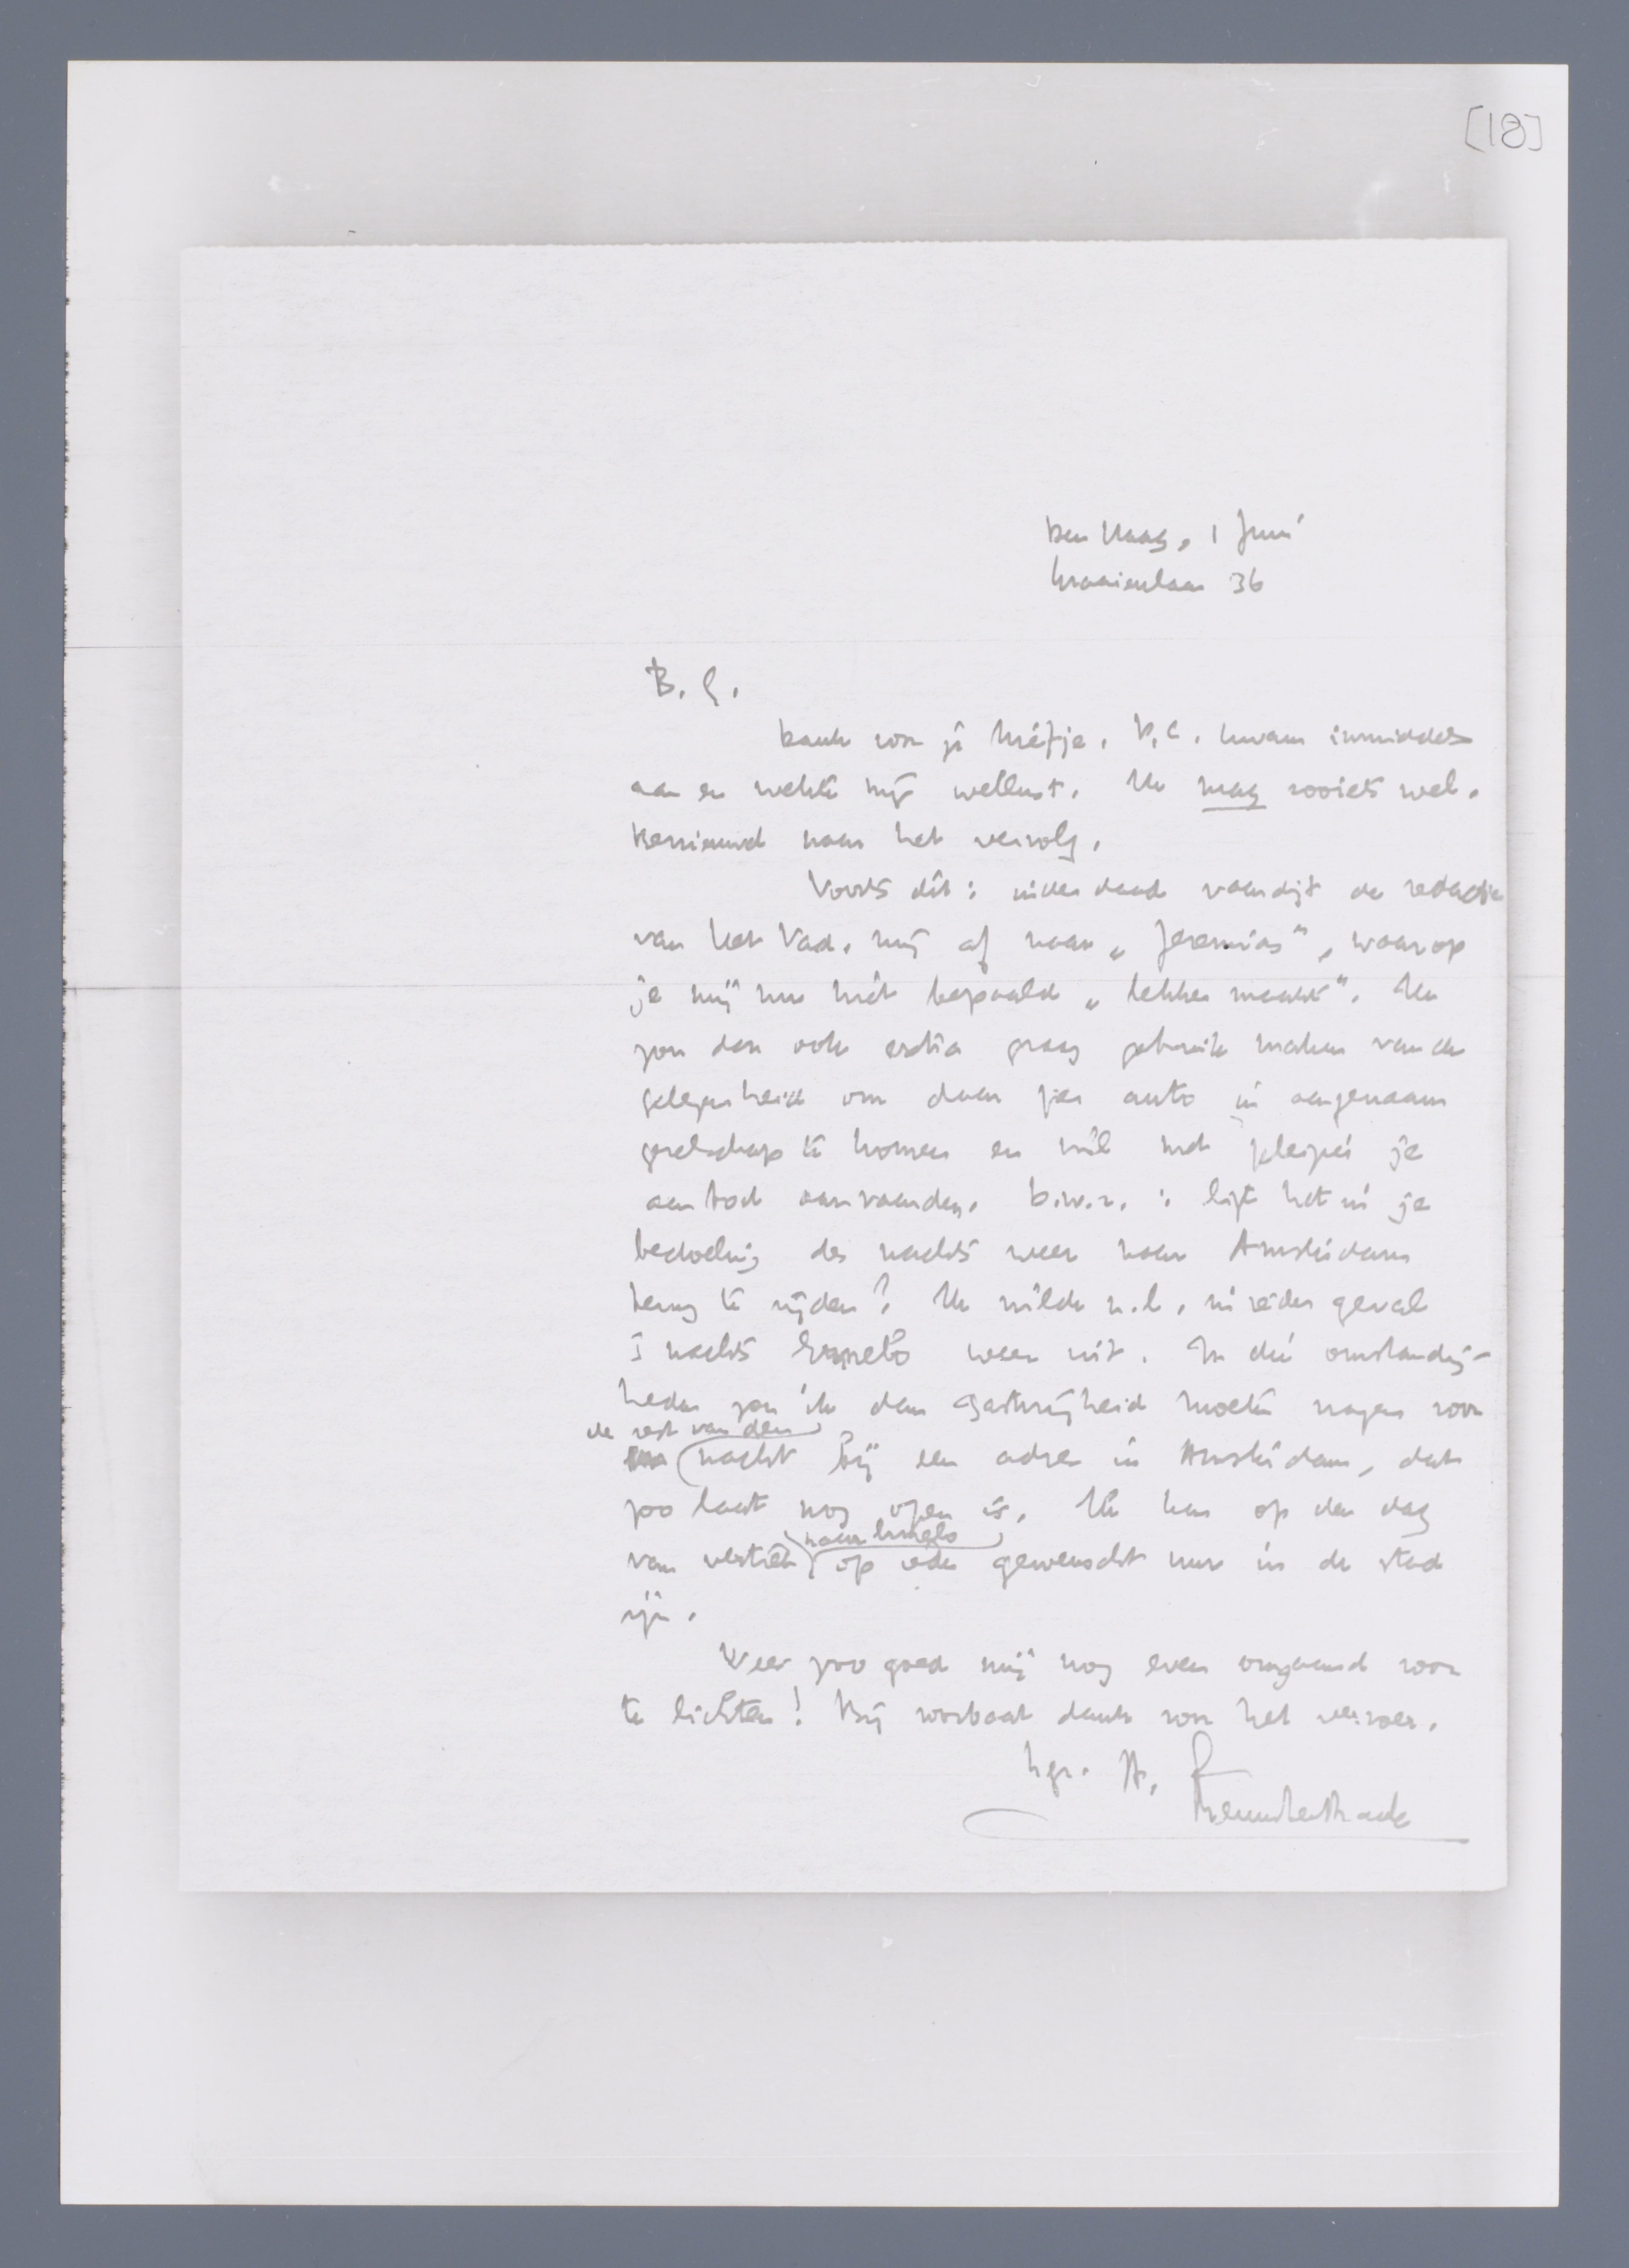 [18]
Den Haag, 1 Juni
Kraaienlaan 36
B. G.
Dank voor je briefje. D.C. kwam inmiddels
aan en wekte mijn wellust. Ik mag zooiets wel.
Benieuwd naar het vervolg.
Voorts dit: inderdaad vaardigt de redactie
van Het Vad. mij af naar „Jeremias", waarop
je mij nu niet bepaald „lekker maakt". Ik
zou dan ook extra graag gebruik maken van de
gelegenheid om daar per auto in aangenaam
gezelschap te komen en wil met plezier je
aanbod aanvaarden. D.w.z.: ligt het in je
bedoeling des nachts weer naar Amsterdam
terug te rijden? Ik wilde n.l. in ieder geval
's nachts Ermelo weer uit. In die omstandig-
heden zou ik dan gastvrijheid moeten vragen voor
de rest van den
nacht bij een adres in Amsterdam, dat
zoo laat nog open is. Ik kan op den dag
naar Ermelo
van vertrek op ieder gewenscht uur in de stad
zijn.
Wees zoo goed mij nog even omgaand voor
te lichten! Bij voorbaat dank voor het vervoer.
h.gr. tt.